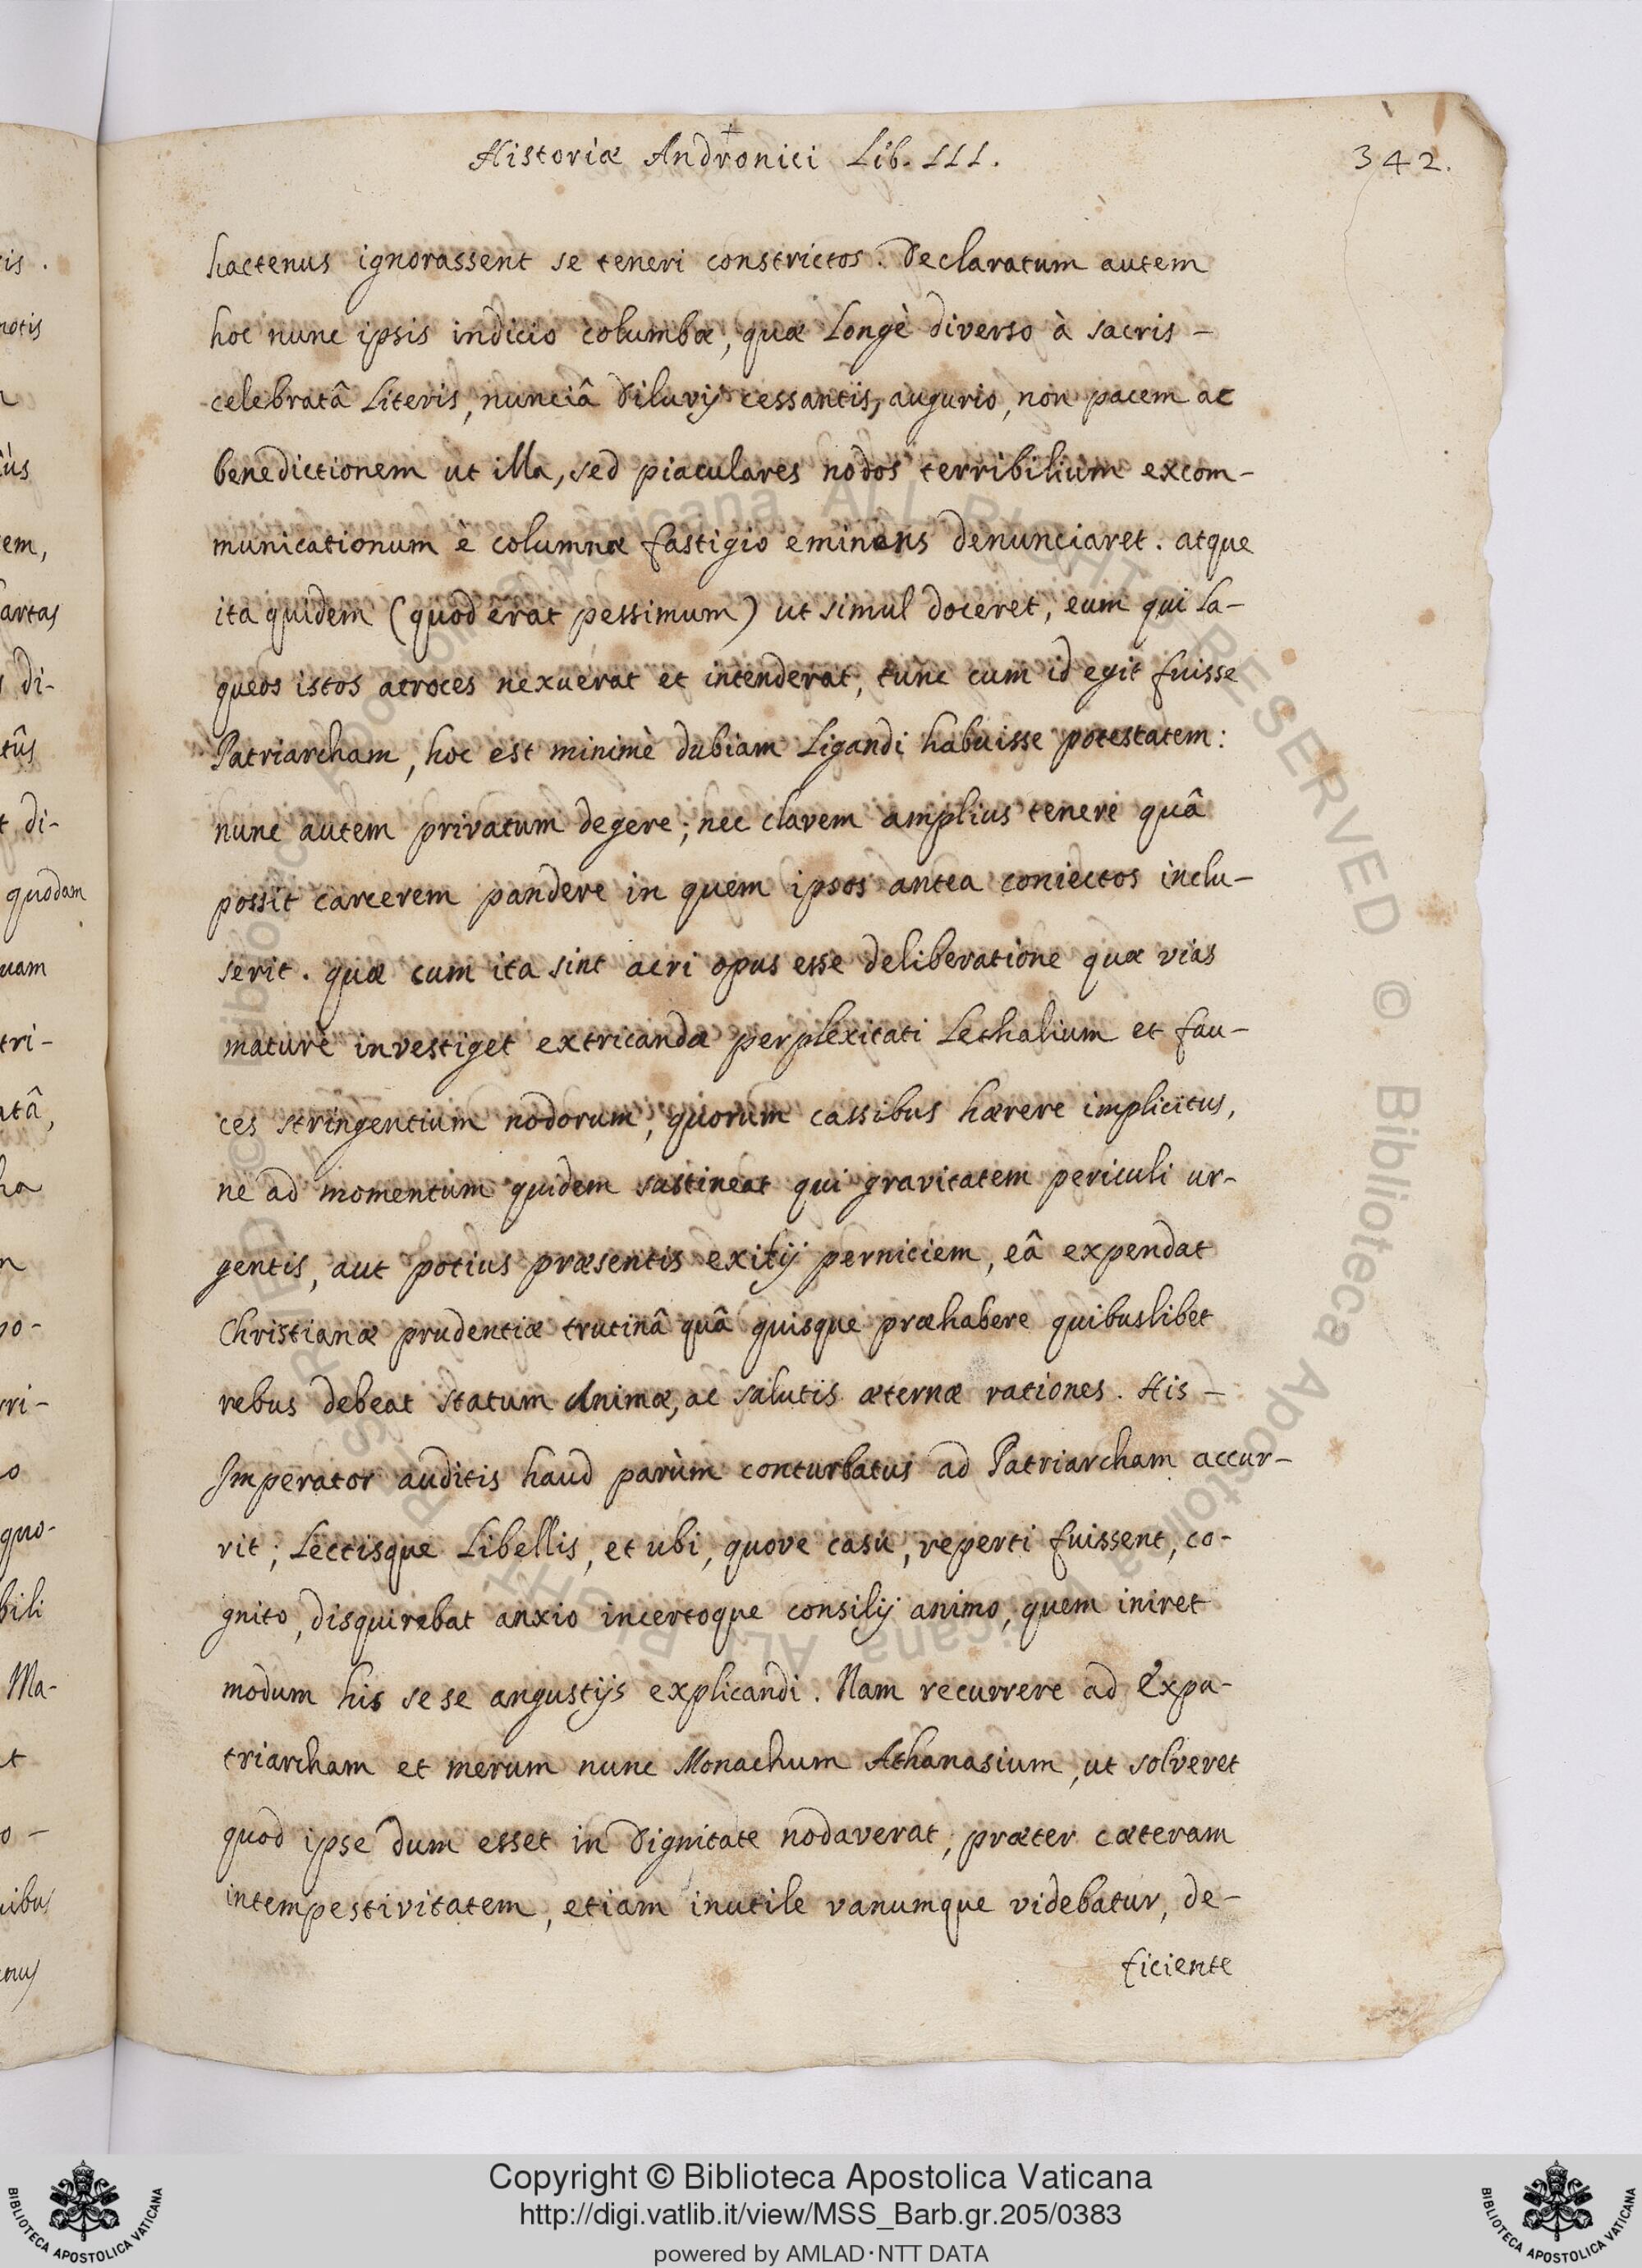 Historiæ Andronici Lib. III.
342.
hactenus ignorassent se teneri constrictos. Declaratum autem
hoc nunc ipsis indicio columbæ, quæ longè diverso à sacris -
celebratâ Literis, nunciâ Diluvij cessantis, augurio, non pacem ac
benedictionem ut illa, sed piaculares nodos terribilium excom-
municationum è columnæ fastigio eminens denunciaret. atque
ita quidem (quod erat pessimum) ut simul doceret, eum qui la-
queos istos atroces nexuerat et intenderat, tunc cum id egit fuisse
Patriarcham, hoc est minimè dubiam Ligandi habuisse potestatem:
nunc autem privatum degere; nec clavem amplius tenere quâ
possit carcerem pandere in quem ipsos antea coniectos inclu-
serit. quæ cum ita sint acri opus esse deliberatione quæ vias
maturè investiget extricandæ perplexitati Lethalium et fau-
ces stringentium nodorum, quorum cassibus hærere implicitus,
ne ad momentum quidem sustineat qui gravitatem periculi ur-
gentis, aut potius præsentis exitij perniciem, eâ expendat
Christianæ prudentiæ trutinâ quâ quisque præhabere quibuslibet
rebus debeat statum Animæ, ac salutis æternæ rationes. His -
Imperator auditis haud parùm conturbatus ad Patriarcham accur-
rit; Lectisque Libellis, et ubi, quove casu, reperti fuissent, co-
gnito, disquirebat anxio incertoque consilij animo, quem iniret
modum his se se angustijs explicandi. Nam recurrere ad Expa-
triarcham et merum nunc Monachum Athanasium, ut solveret
quod ipse dum esset in Dignitate nodaverat, præter cæteram
intempestivitatem, etiam inutile vanumque videbatur, de-
ficiente
Copyright © Biblioteca Apostolica Vaticana
http://digi.vatlib.it/view/MSS_Barb.gr.205/0383
powered by AMLAD·NTT DATA